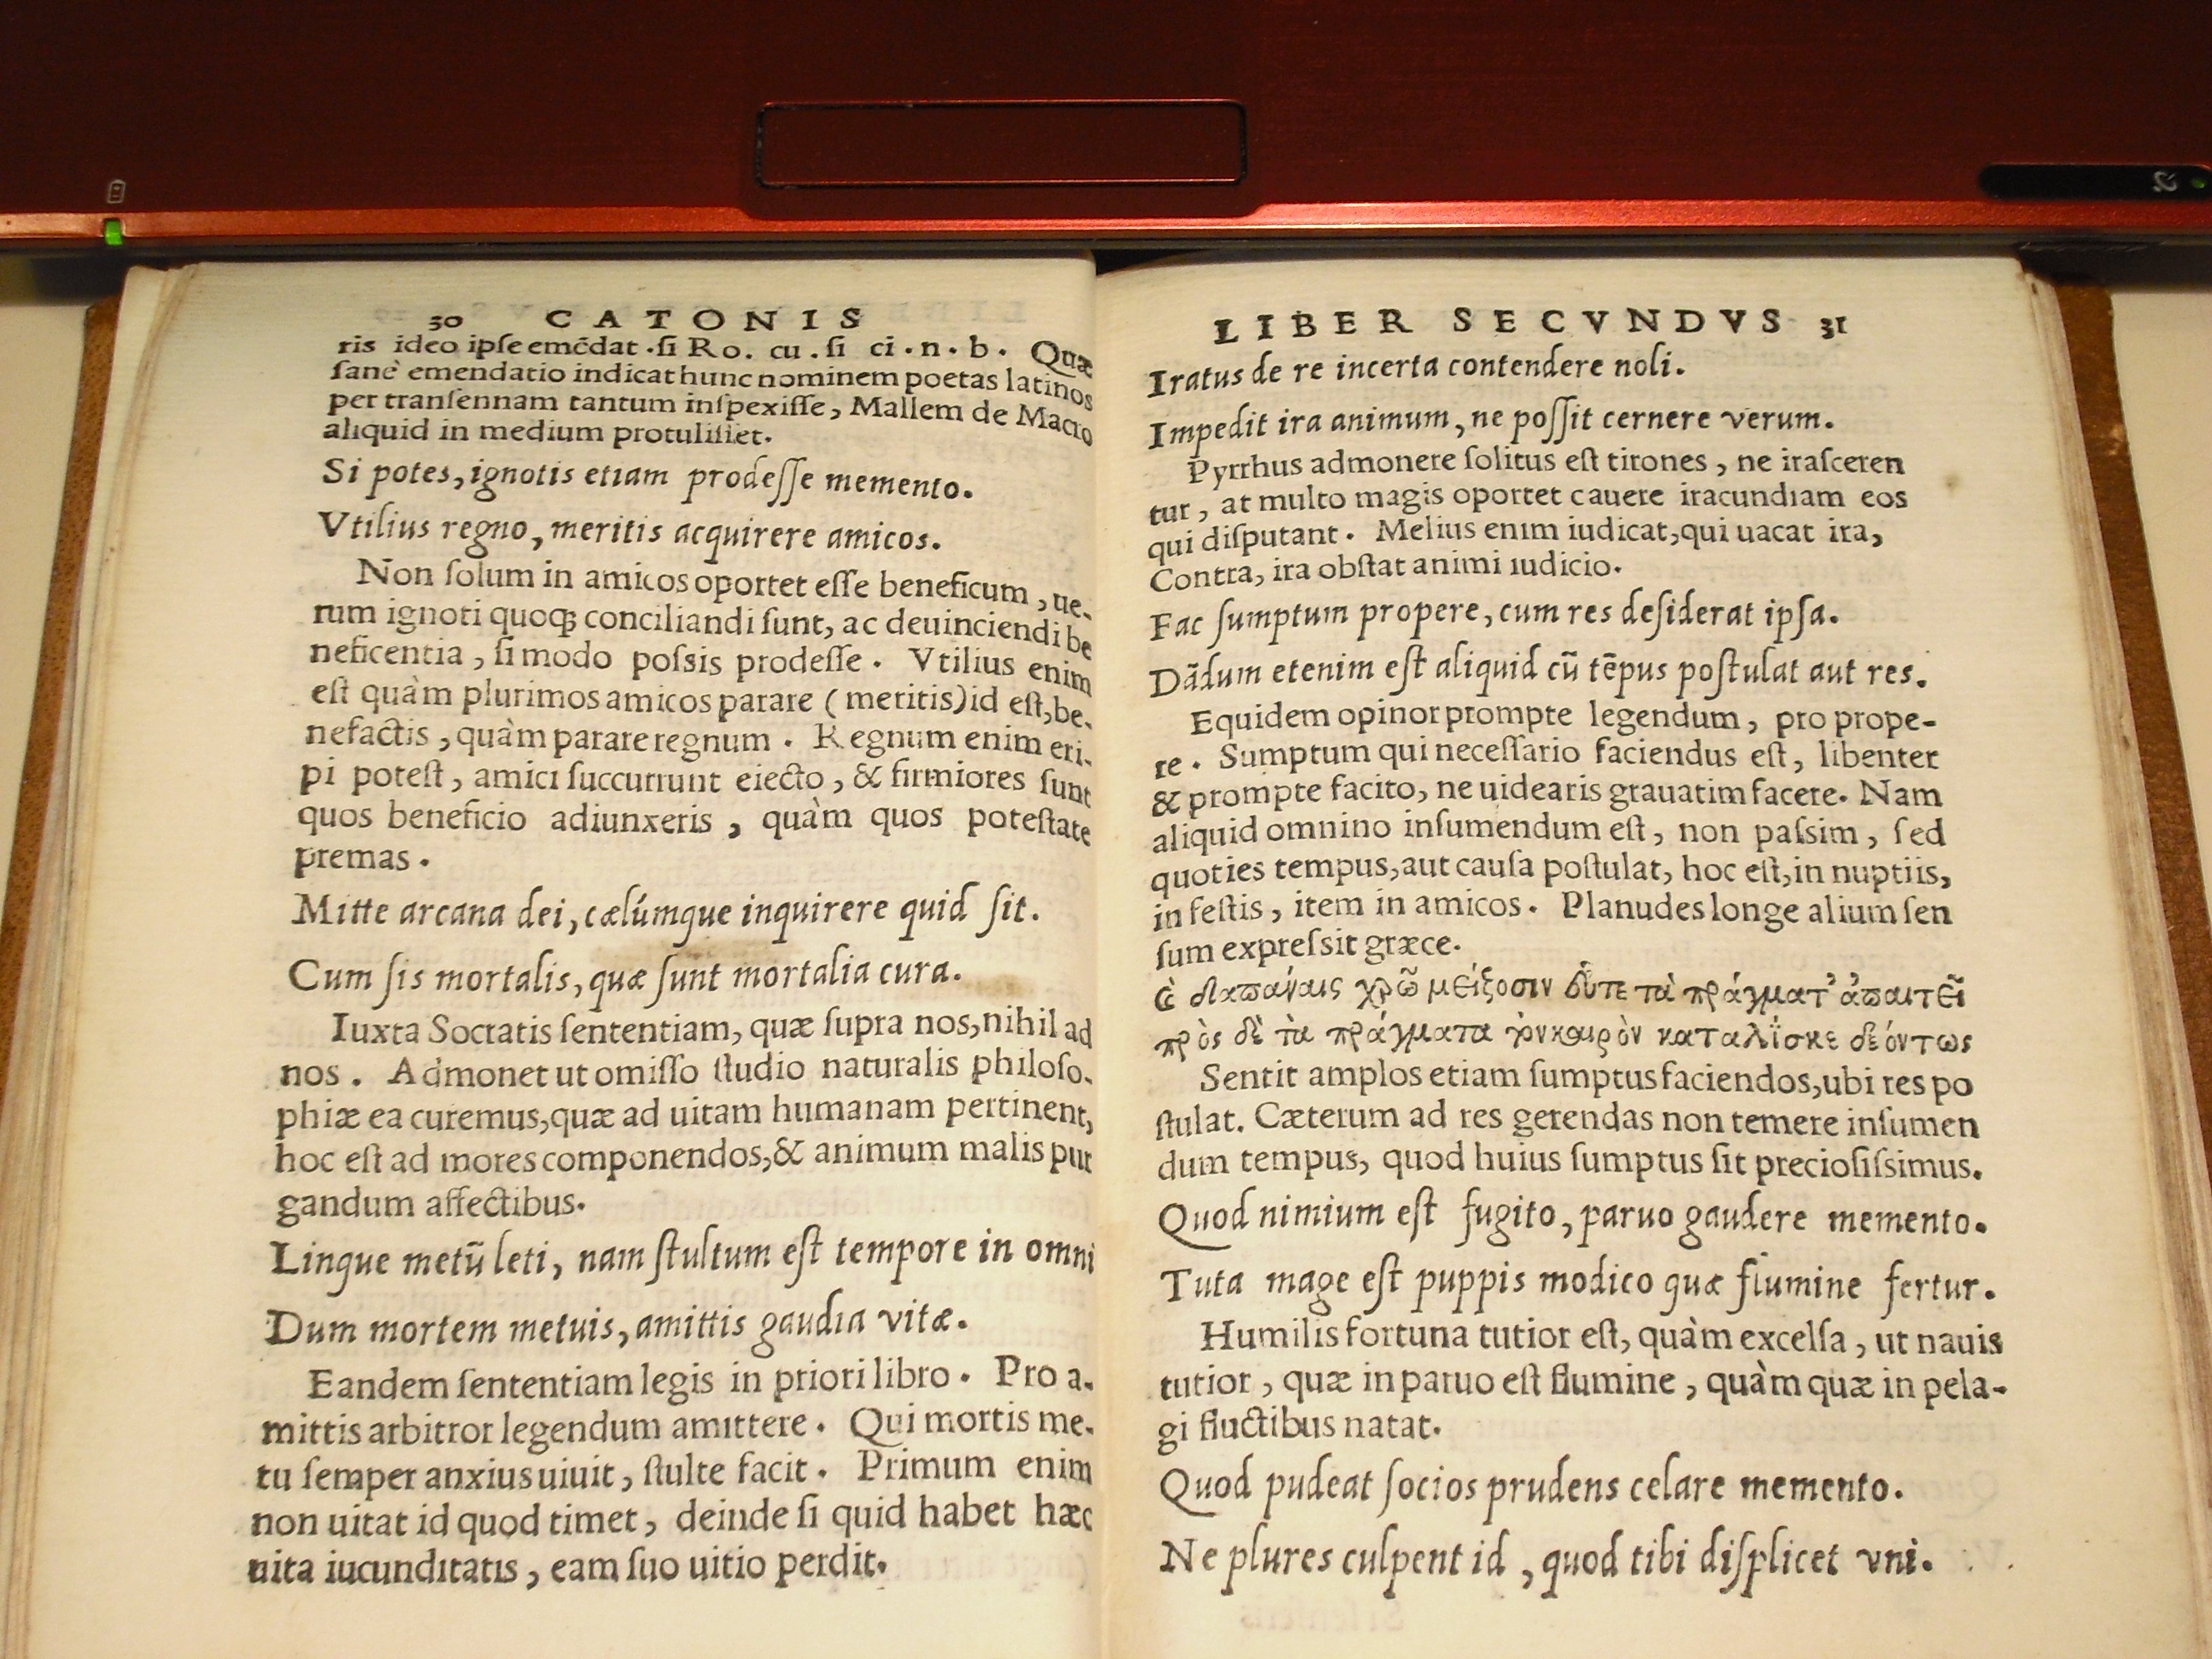 30 CATONIS
ris ideo ipſe emēdat .ſi Ro. cu . ſi ci . n . b . Quæ
ſanè emendatio indicat hunc nominem poetas latinos
per tranſennam tantum inſpexiſſe, Mallem de Macro
aliquid in medium protuliſſet.
Si potes, ignotis etiam prodeſſe memento.
Vtilius regno, meritis acquirere amicos.
Non ſolum in amicos oportet eſſe beneficum, ue-
rum ignoti quoqꝫ conciliandi ſunt, ac deuinciendi be
neficentia, ſi modo poſsis prodeſſe. Vtilius enim
eſt quàm plurimos amicos parare (meritis) id eſt, be-
nefactis, quàm parare regnum. Regnum enim eri-
pi poteſt, amici ſuccurrunt eiecto, & firmiores ſunt
quos beneficio adiunxeris, quàm quos poteſtate
premas.
Mitte arcana dei, cælúmque inquirere quid ſit.
Cum ſis mortalis, quæ ſunt mortalia cura.
Iuxta Socratis ſententiam, quæ ſupra nos, nihil ad
nos. Admonet ut omiſſo ſtudio naturalis philoſo-
phiæ ea curemus, quæ ad uitam humanam pertinent,
hoc eſt ad mores componendos, & animum malis pur
gandum affectibus.
Linque metū leti, nam ſtultum eſt tempore in omni
Dum mortem metuis, amittis gaudia vitæ.
Eandem ſententiam legis in priori libro. Pro a-
mittis arbitror legendum amittere. Qui mortis me-
tu ſemper anxius uiuit, ſtulte facit. Primum enim
non uitat id quod timet, deinde ſi quid habet hæc
uita iucunditatis, eam ſuo uitio perdit.
LIBER SECVNDVS 31
Iratus de re incerta contendere noli.
Impedit ira animum, ne poſſit cernere verum.
Pyrrhus admonere ſolitus eſt tirones, ne iraſceren
tur, at multo magis oportet cauere iracundiam eos
qui diſputant. Melius enim iudicat, qui uacat ira,
Contra, ira obſtat animi iudicio.
Fac ſumptum propere, cum res deſiderat ipſa.
Dādum etenim eſt aliquid cū tēpus poſtulat aut res.
Equidem opinor prompte legendum, pro prope-
re. Sumptum qui neceſſario faciendus eſt, libenter
& prompte facito, ne uidearis grauatim facere. Nam
aliquid omnino inſumendum eſt, non paſsim, ſed
quoties tempus, aut cauſa poſtulat, hoc eſt, in nuptiis,
in feſtis, item in amicos. Planudes longe alium ſen
ſum expreſsit græce.
δαπάναις χρῶ μείζοσιν τὰ πράγματ' ἀπαιτεῖ
πρὸς δὲ τὰ πράγματα καιρὸν δεόντως
Sentit amplos etiam ſumptus faciendos, ubi res po
ſtulat. Cæterum ad res gerendas non temere inſumen
dum tempus, quod huius ſumptus ſit precioſiſsimus.
Quod nimium eſt fugito, paruo gaudere memento.
Tuta mage eſt puppis modico quæ flumine fertur.
Humilis fortuna tutior eſt, quàm excelſa, ut nauis
tutior, quæ in paruo eſt flumine, quàm quæ in pela-
gi fluctibus natat.
Quod pudeat ſocios prudens celare memento.
Ne plures culpent id, quod tibi diſplicet vni.